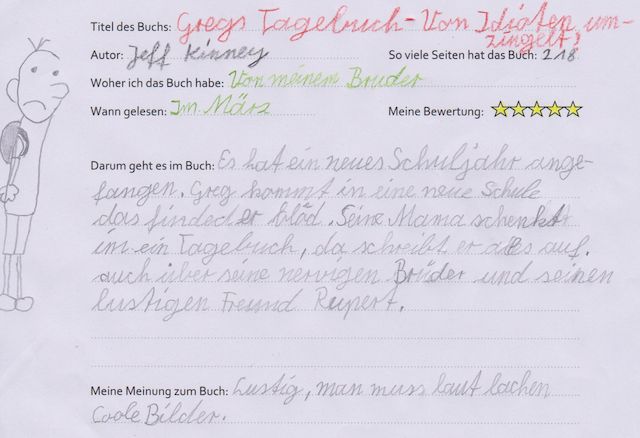 Titel des Buchs: Gregs Tagebuch - Von Idioten um-
zingelt!
Autor: Jeff Kinney So viele Seiten hat das Buch: 218
Woher ich das Buch habe: Von meinem Bruder
Wann gelesen: Im März Meine Bewertung:
Darum geht es im Buch: Es hat ein neues Schuljahr ange-
fangen. Greg kommt in eine neue Schule
das finded er blöd. Seine Mama schenkt
im ein Tagebuch, da schreibt er alles auf.
auch über seine nervigen Brüder und seinen
lustigen Freund Rupert.
Meine Meinung zum Buch: Lustig, man muss laut lachen
Coole Bilder.